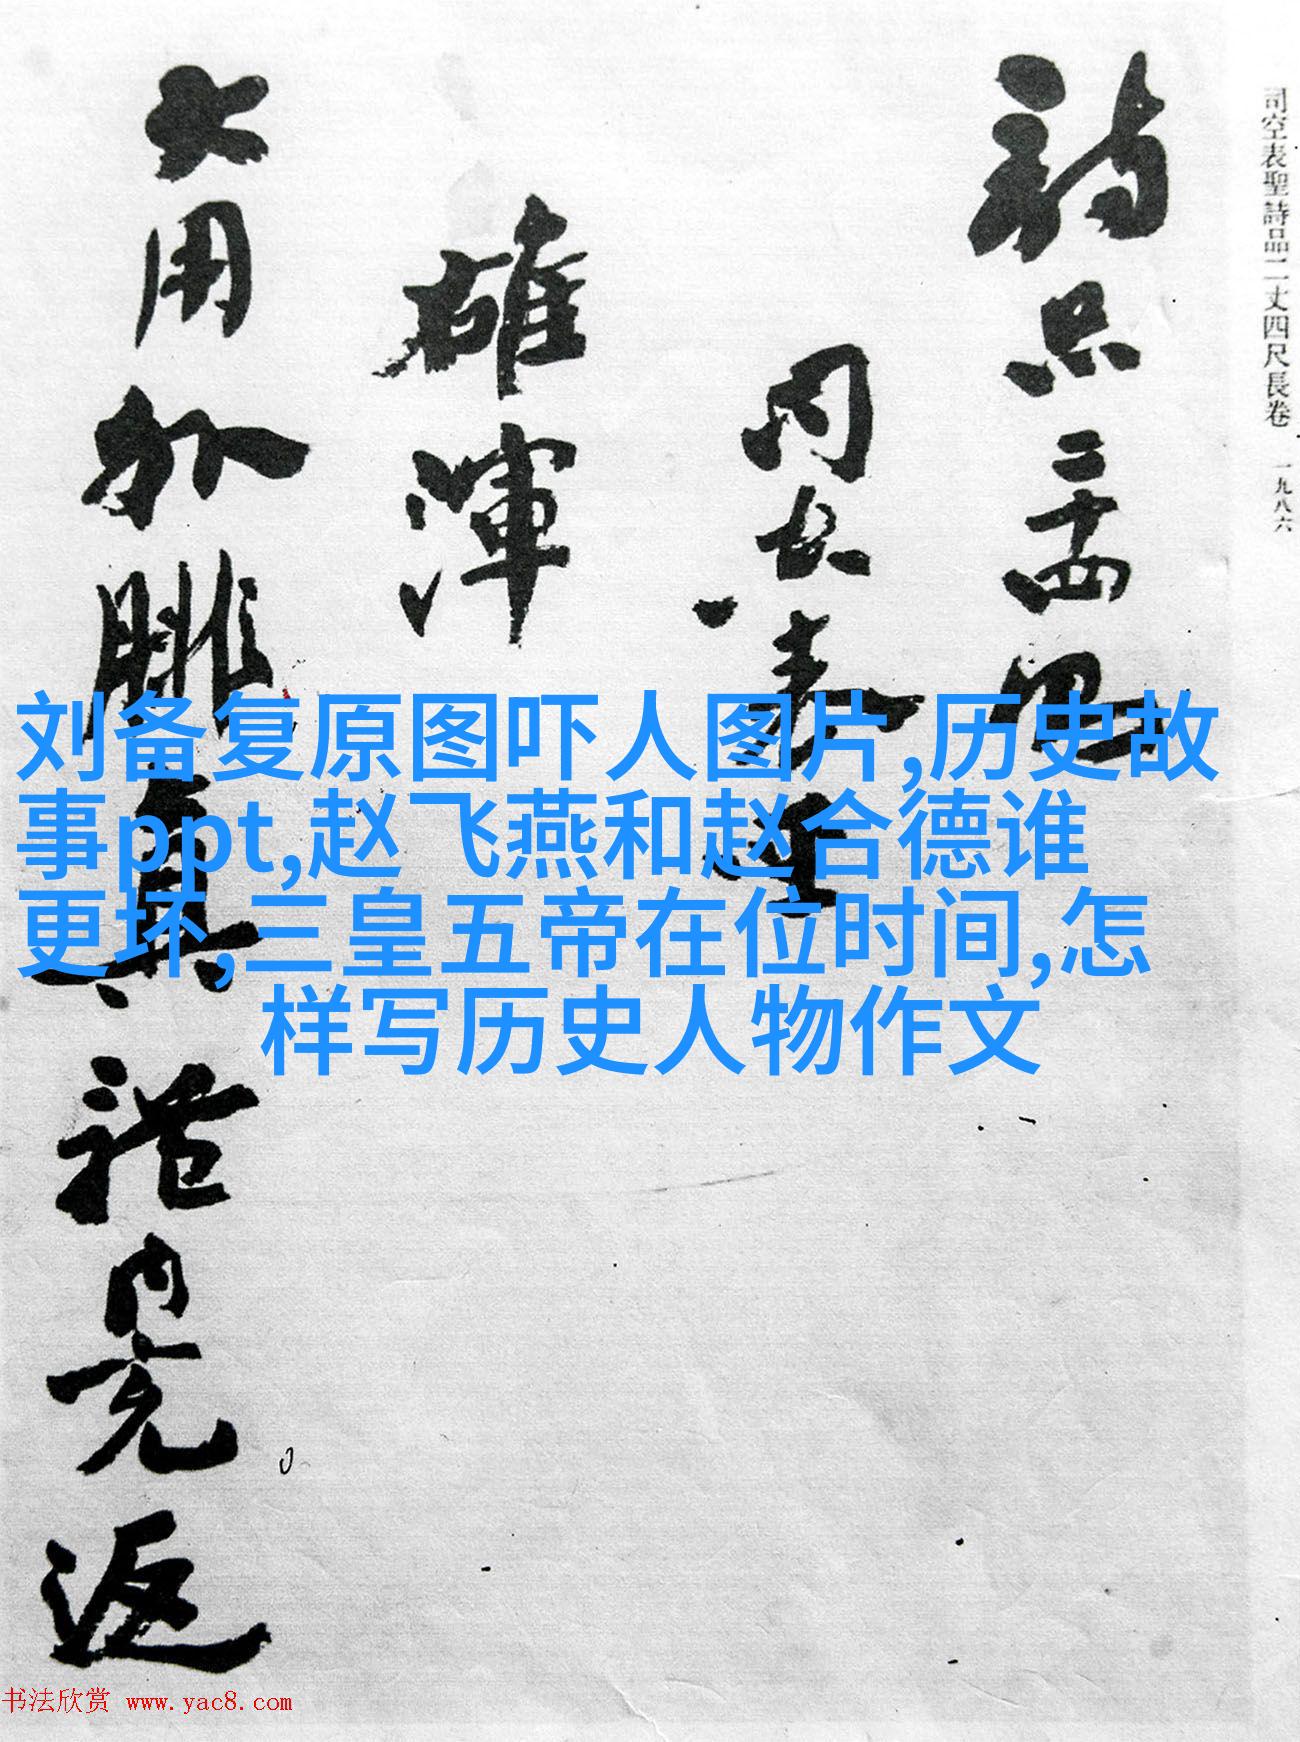 司空表聖詩品二丈四尺長卷 一九八六
詩品二十四則
司空表聖
雄渾
大用外腓真體内充返
刘备复原图吓人图片,历史故
事ppt,赵飞燕和赵合德谁
更坏,三皇五帝在位时间,怎
样写历史人物作文
书法欣赏 www.yac8.com